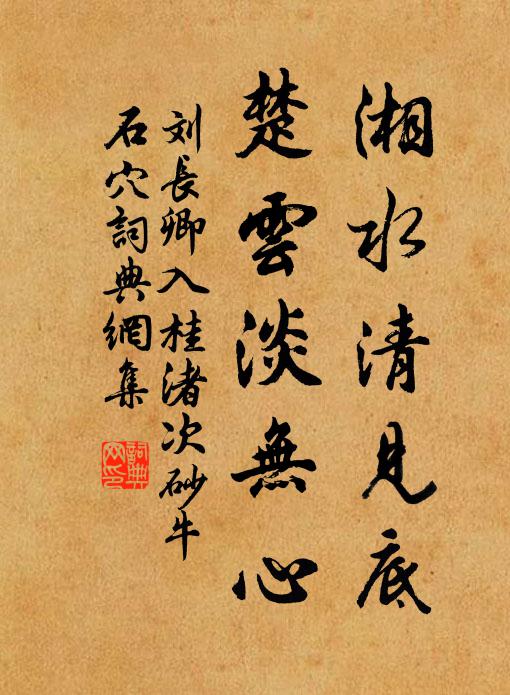 湘水清見底
楚雲淡無心
刘長卿入桂渚次砂牛
石穴詞典網集
詞典
网印